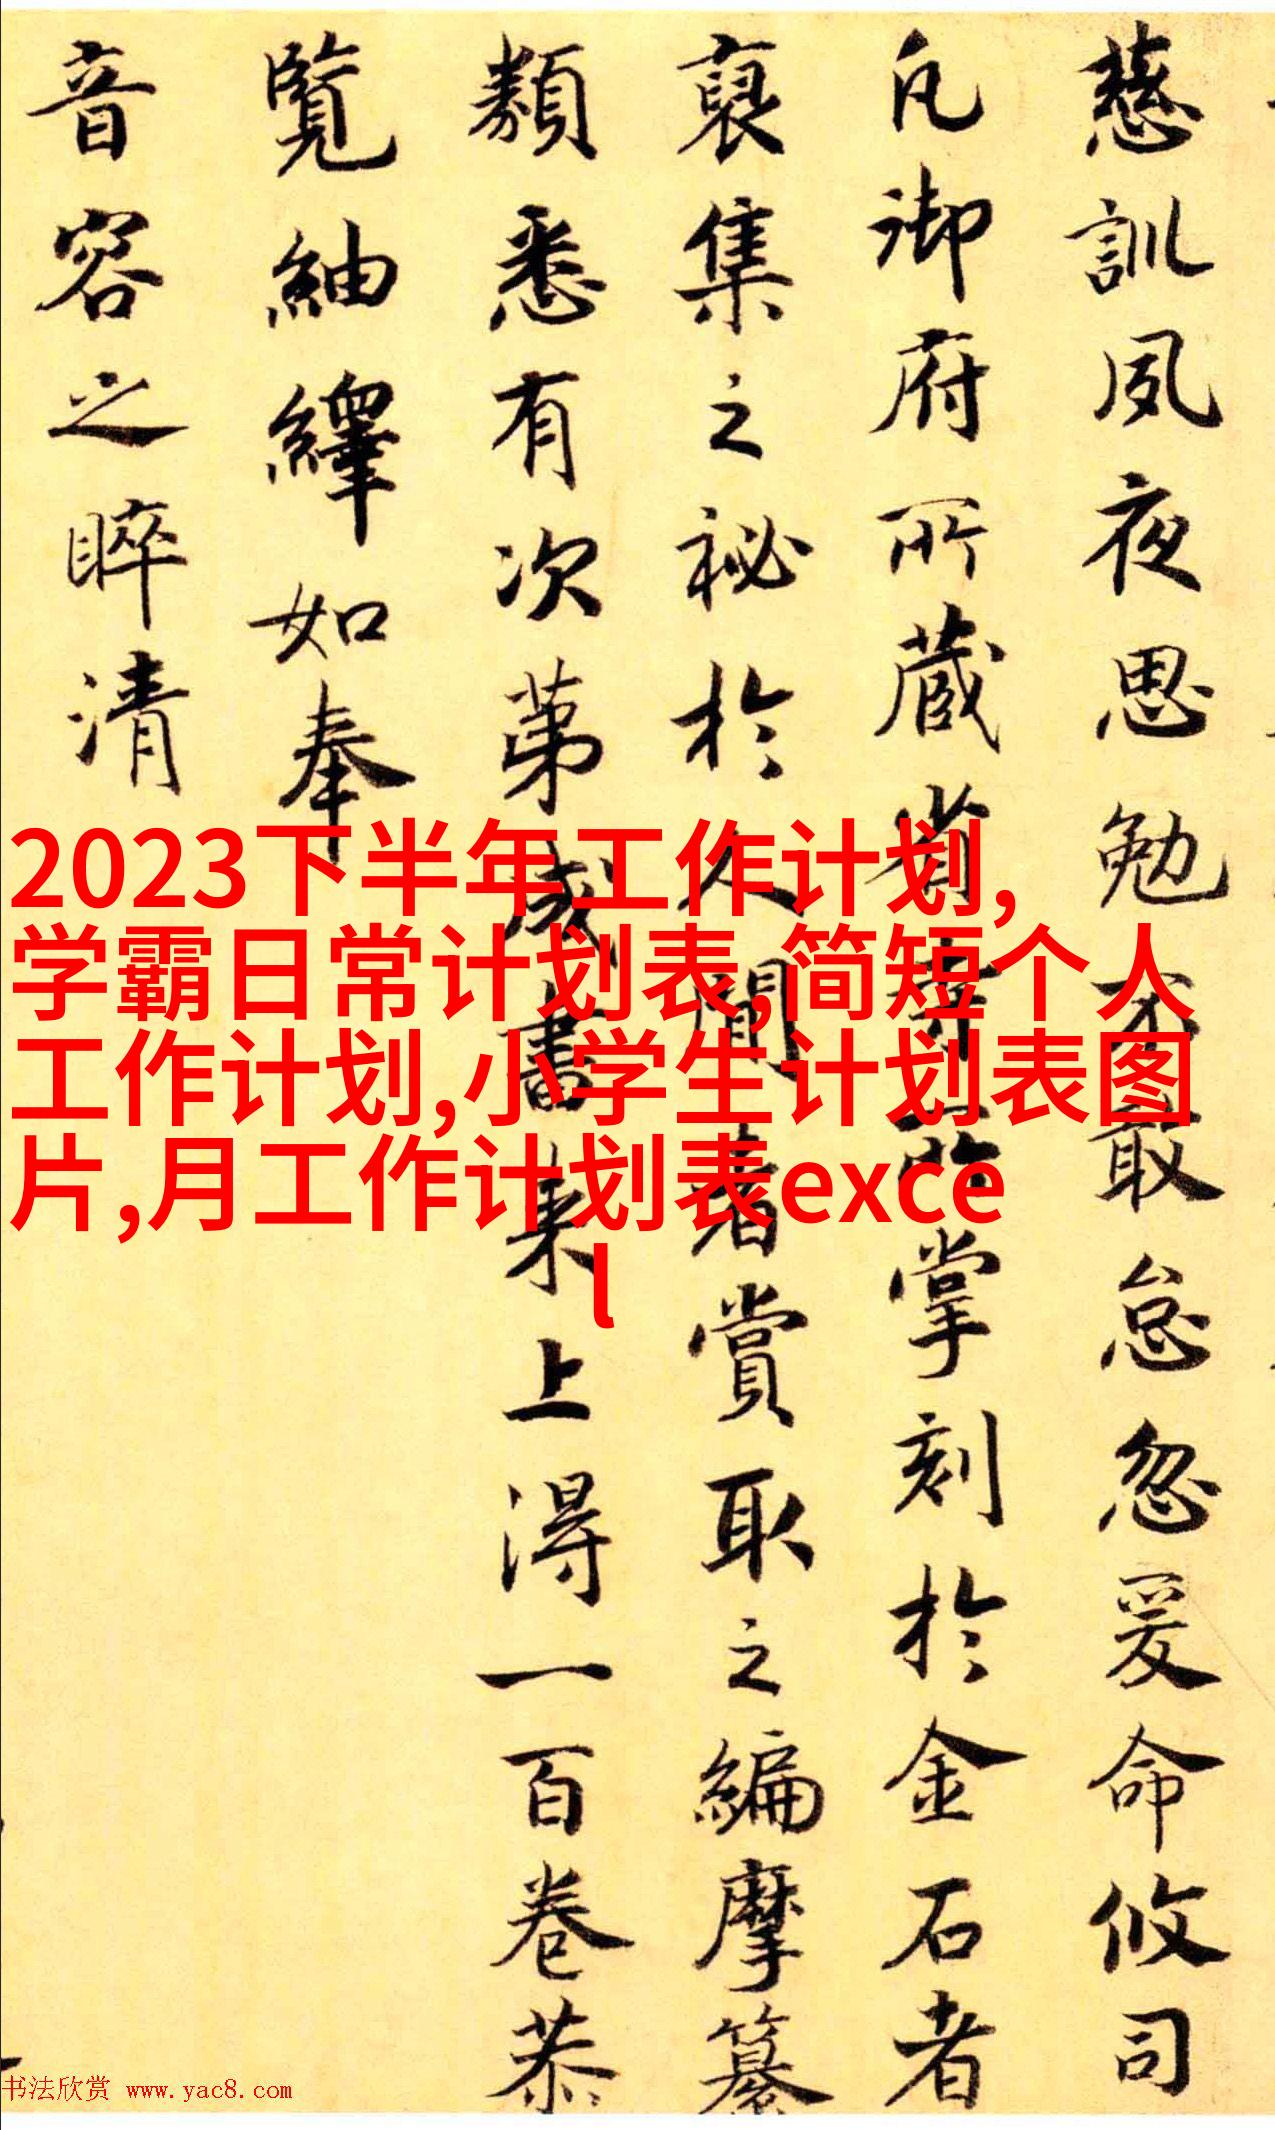 慈訓夙夜思勉不敢怠忽爰命攸司
凡御府所藏省寺所掌刻於金石者
裒集之祕於人間者賞取之編摩纂
類悉有次第成書来上得一百卷恭
覽紬繹如奉
音容之睟清
2023下半年工作计划,
学霸日常计划表,简短个人
工作计划,小学生计划表图
片,月工作计划表exce
l
书法欣赏 www.yac8.com